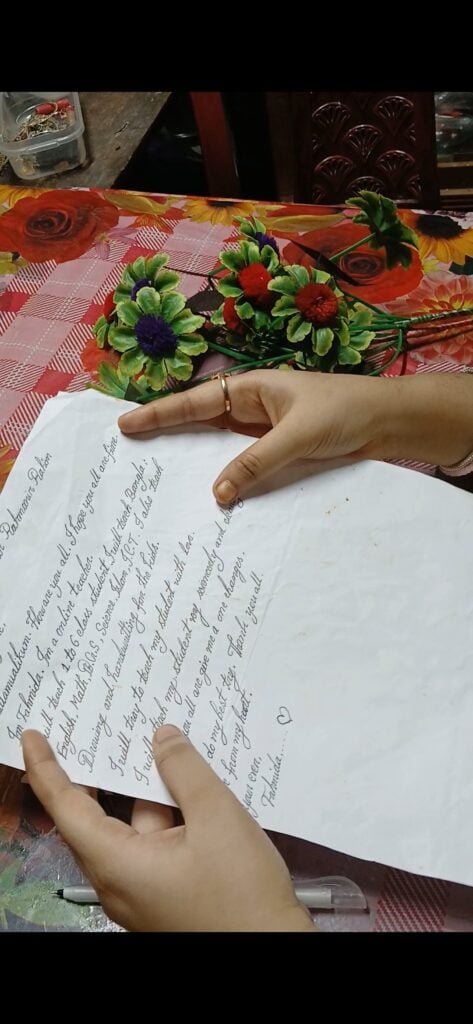 Rahman's Ralian
Assalamualikum. How are you all. I hope you all are fine
I'm Tahmida. I'm a online teacher.
will teach 1 to 6 class student. I will teach Bangla,
English, Math, B.G.S, Science, Islam, I.C.T. I also teach
Drawing and handwriting for the kids.
I will tray to teach my student with love.
I will teach my student my serenedy and
you all are give me a one changes.
do my best tray. Thank you all
from my heart.
your own,
Tahmida......♡